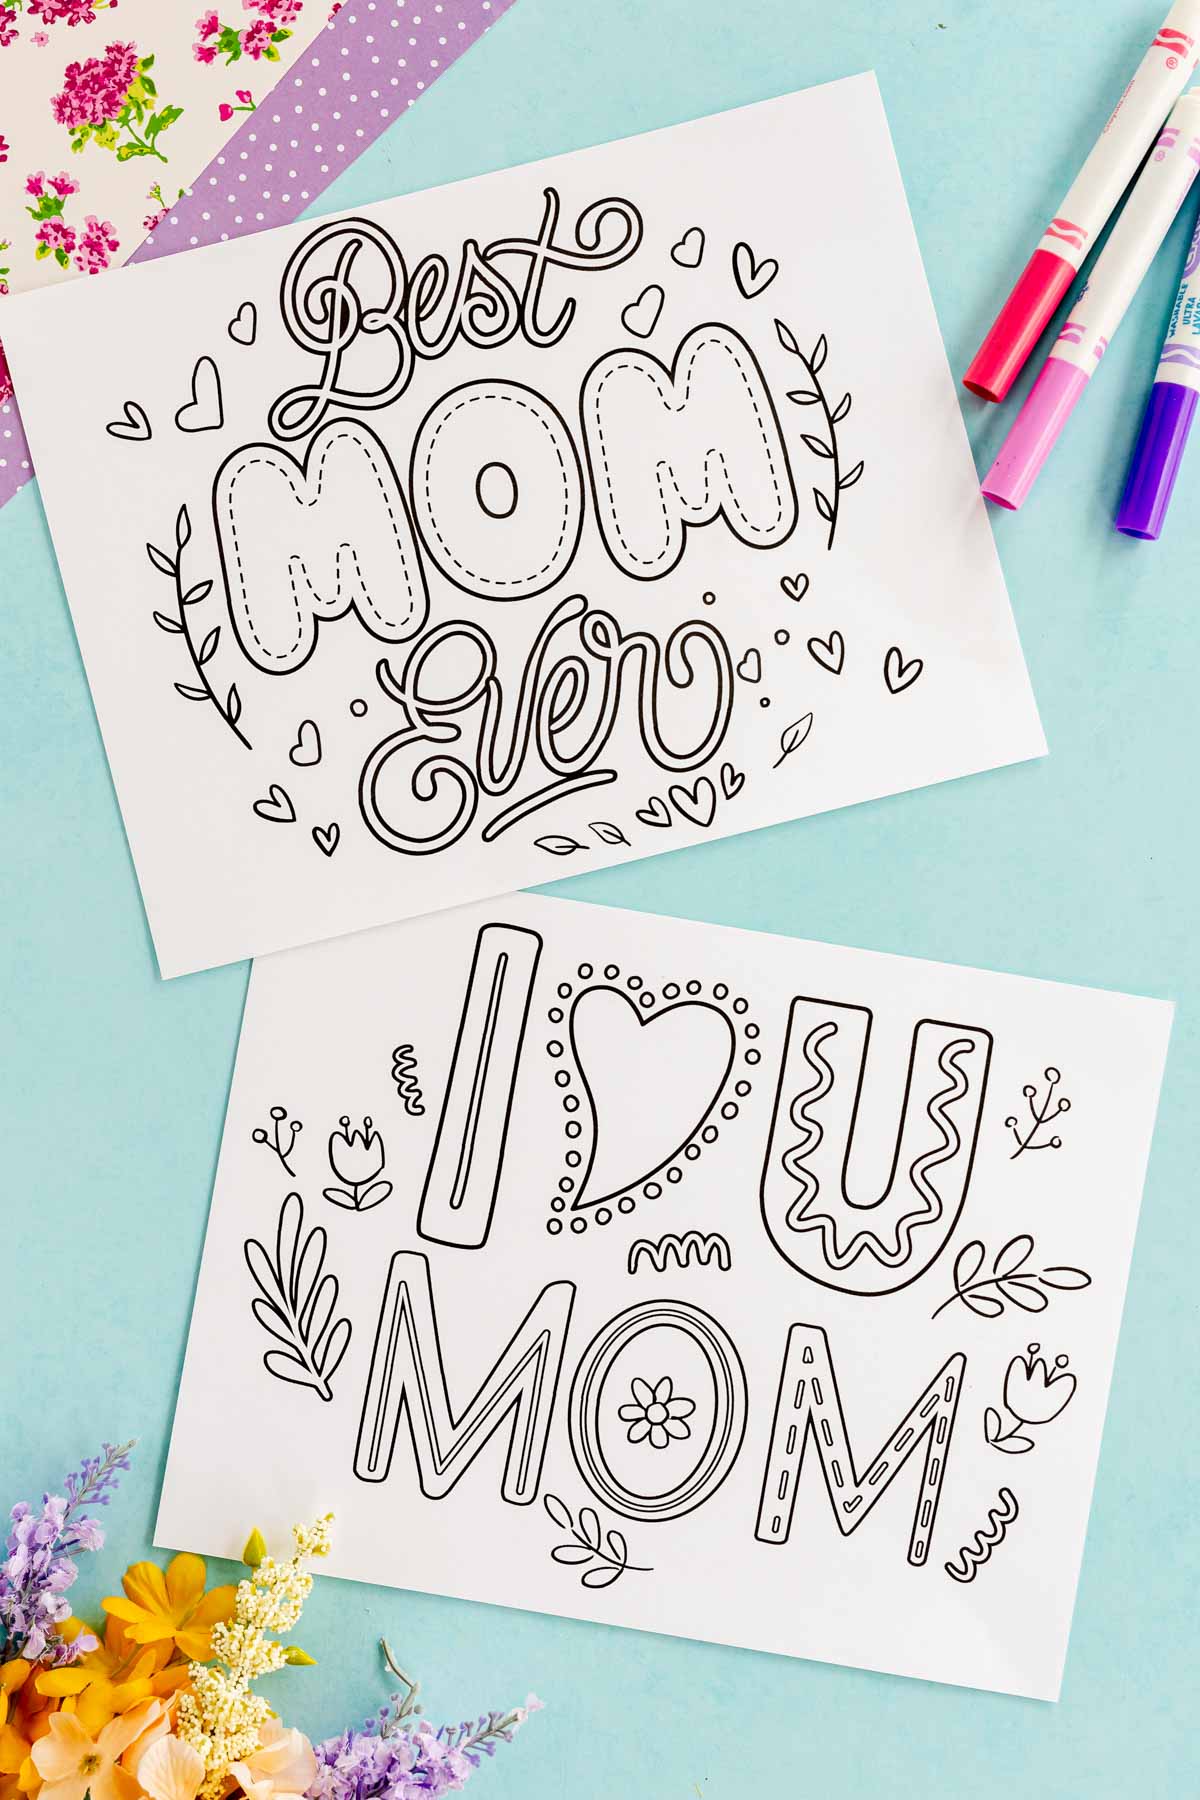 Best
MOM
Ever
I U
MOM
WASHABLE
ULTRA